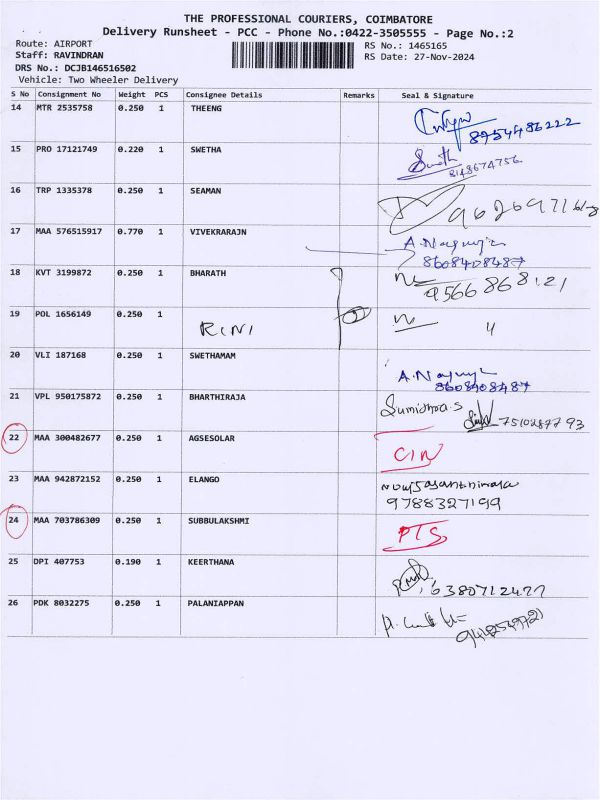 THE PROFESSIONAL COURIERS, COIMBATORE
Delivery Runsheet - PCC - Phone No.:0422-3505555 - Page No.:2
Route: AIRPORT
RS No.: 1465165
Staff: RAVINDRAN
RS Date: 27-Nov-2024
DRS No.: DCJB146516502
Vehicle: Two Wheeler Delivery
S No Consignment No Weight PCS Consignee Details Remarks Seal & Signature
14 MTR 2535758 0.250 1 THEENG
8754486222
15 PRO 17121749 0.220 1 SWETHA
8148674756
16 TRP 1335378 0.250 1 SEAMAN
17 MAA 576515917 0.770 1 VIVEKRARAJN
8608408487
18 KVT 3199872 0.250 1 BHARATH
9566868121
19 POL 1656149 0.250 1
RINI
20 VLI 187168 0.250 1 SWETHAMAM
8608408487
21 VPL 950175872 0.250 1 BHARTHIRAJA
Sumithra.S
7510289793
22 MAA 300482677 0.250 1 AGSESOLAR
CIN
23 MAA 942872152 0.250 1 ELANGO
9788327199
24 MAA 703786309 0.250 1 SUBBULAKSHMI
PTS
25 DPI 407753 0.190 1 KEERTHANA
6380712477
26 PDK 8032275 0.250 1 PALANIAPPAN